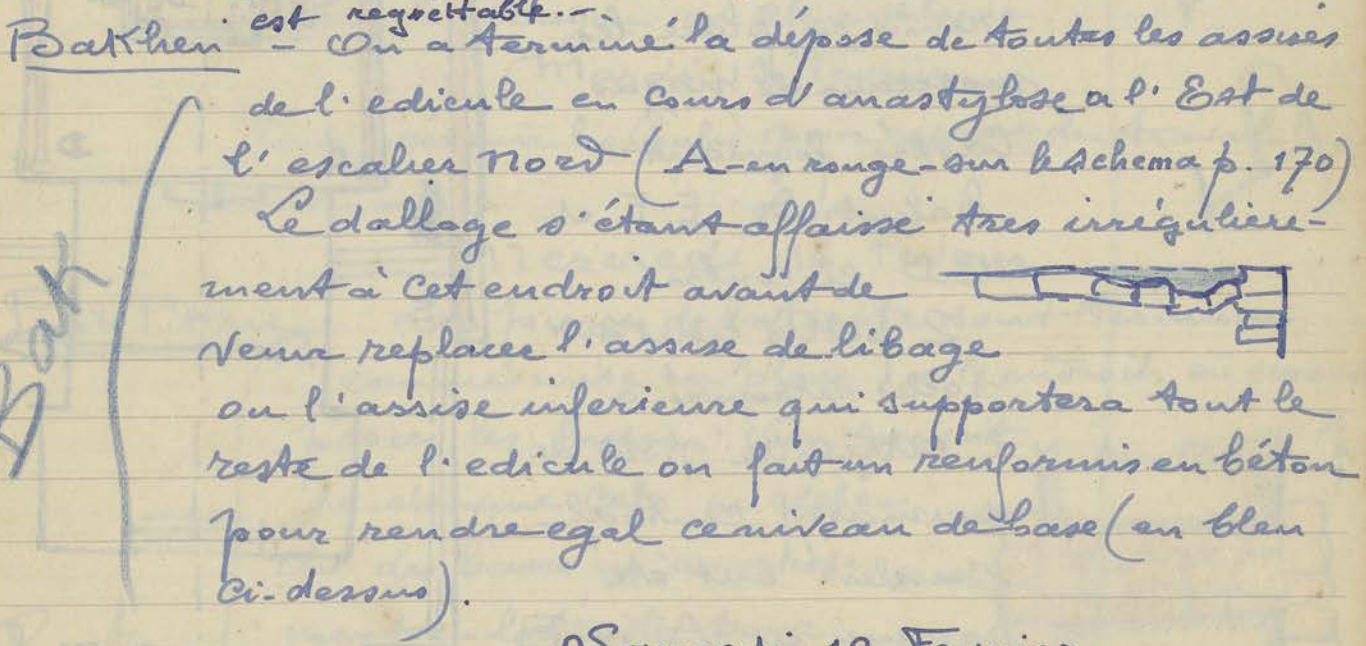 est regrettable.-
Bakheń - On a terminé la dépose de toutes les assises
de l'edicule en cours d'anastylose a l'Est de
l'escalier Nord (A-en rouge-sur le schema p. 170)
Le dallage s'étant affaissé tres irréguliere-
ment à cet endroit avant de
venir replacer l'assise de libage
ou l'assise inferieure qui supportera tout le
reste de l'edicule on fait un renformis en béton
pour rendre egal ce niveau de base (en bleu
ci-dessus).
Bak